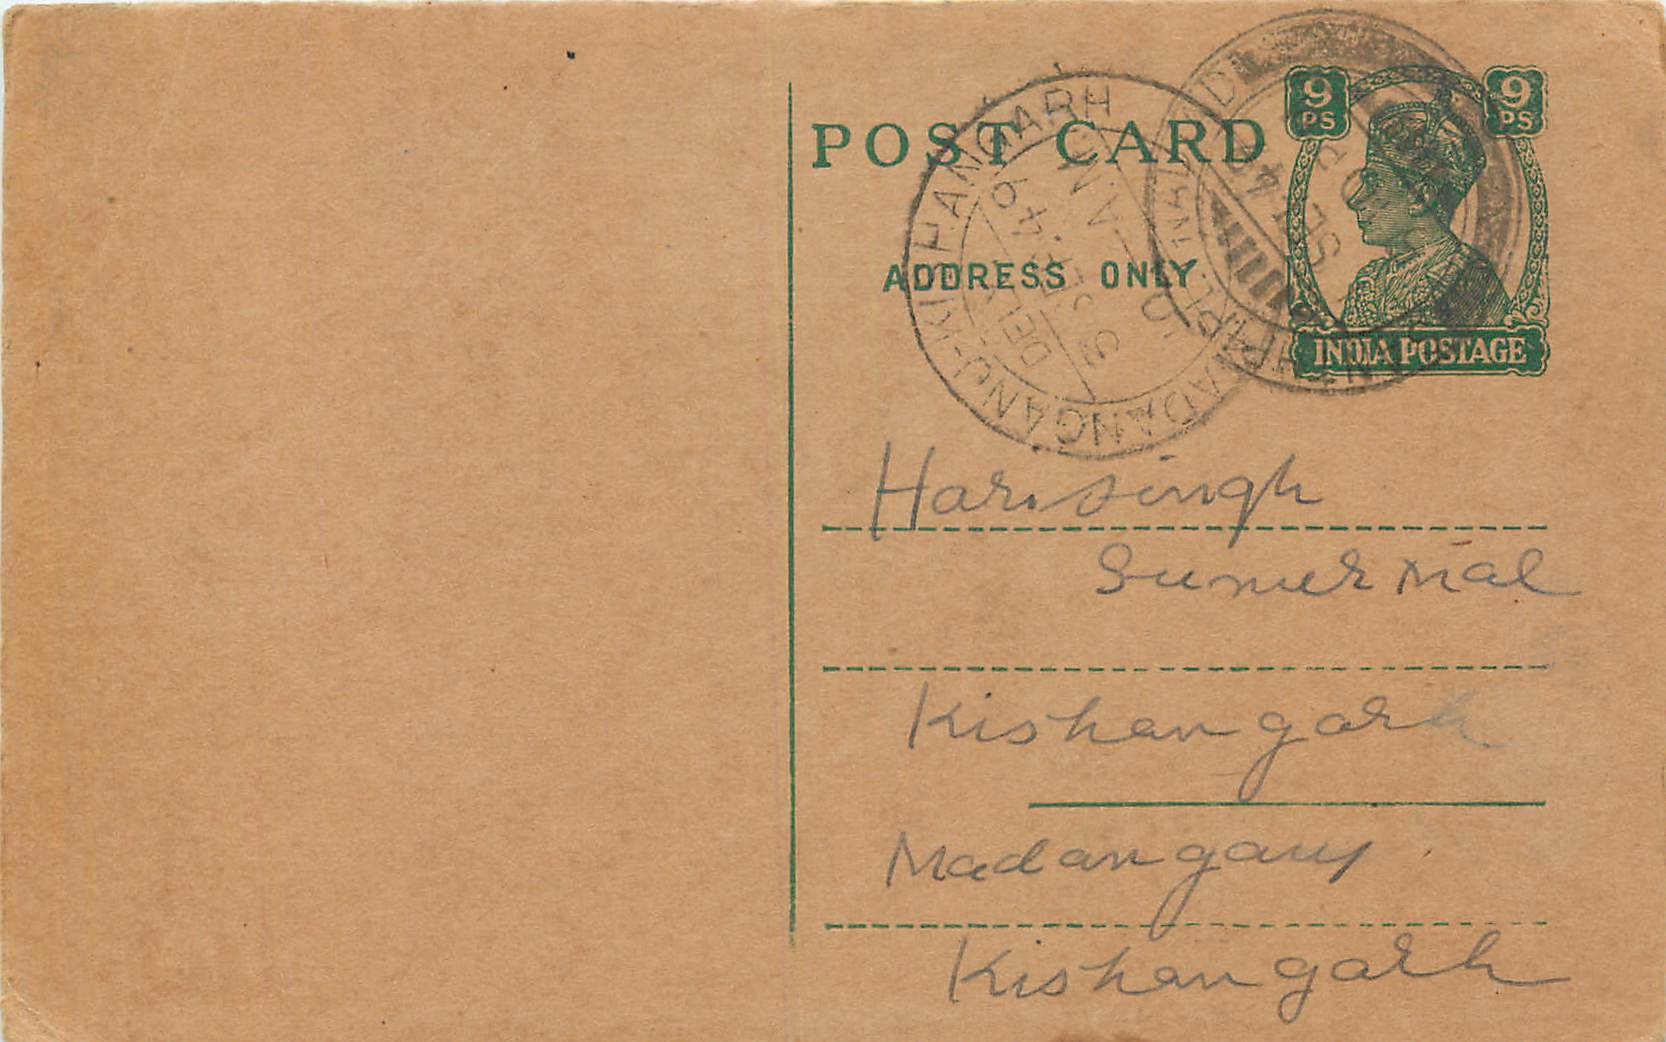 POST CARD
9 PS
9 PS
ADDRESS ONLY
INDIA POSTAGE
MADANGANJ-KISHANGARH
DELY.
Harisingh
Sumermal
Kishangarh
Madanganj
Kishangarh